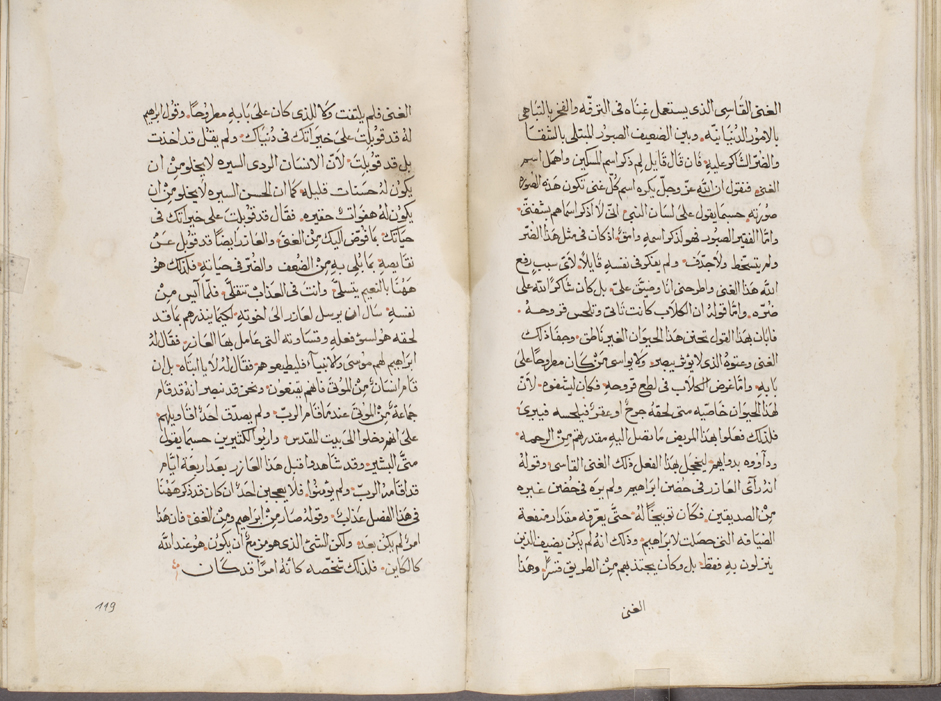 الغنى القاسى الذى يستعمل غناه فى الترفه والفخر بالتباهى
بالامور الدنيانيه وبين الضعيف الصبور المبتلى بالشقا
والفقر الشاكر عليه فان قال قايل لم ذكر اسم المسكين واهمل اسم
الغنى فنقول ان الله عز وجل يكره اسم كل غنى تكون هذه الصوره
صورته حسبما يقول على لسان النبى انى لا اذكر اسماهم بشفتى
واما الفقير الصبور فهو لذكر اسمه وامق اذ كان فى مثل هذا الفقر
ولم يتسخط ولا جدف ولم يفكر فى نفسه قايلا لاى سبب رفع
الله هذا الغنى واطرحنى انا وضيق على بل كان شاكرا لله على
ضره واما قوله ان الكلاب كانت تاتى وتلحس قروحه
فابان بهذا القول تحنن هذا الحيوان الغير ناطق وجفا ذلك
الغنى وعتوه الذى لا يوثر يبصر ولا يواسى من كان مطروحا على
بابه واما غرض الكلاب فى لطع قروحه فكان ليشفوه لان
لهذا الحيوان خاصيه متى لحقه جرح او عقر فيلحسه فيبرى
فلذلك فعلوا بهذا المريض ما تصل اليه مقدرتهم من الرحمه
وداووه بدوايهم ليخجل بهذا الفعل ذلك الغنى القاسى وقوله
انه راى العازر فى حضن ابراهيم ولم يره فى حضن غيره
من الصديقين فكان توبيخا له حتى يعرفه مقدار منفعة
الضيافه التى حصلت لابراهيم وذلك انه لم يكن يضيف الذين
ينزلون به فقط بل وكان يجتذبهم من الطريق قسرا وهذا
الغنى
الغنى فلم يلتفت ولا للذى كان على بابه مطروحا وقول ابراهيم
له قد قوبلت على خيراتك فى دنياك ولم يقل قد اخذت
بل قد قوبلت لان الانسان الردى السيره لا يخلو من ان
يكون له حسنات قليله كما ان الحسن السيره لا يخلو من ان
يكون له هفوات حقيره فقال قد قوبلت على خيراتك فى
حياتك بما فوض اليك من الغنى والعازر ايضا قد قوبل عن
نقايصه بما بلى به من الضعف والفقر فى حياته فلذلك هو
ههنا بالنعيم يتسلى وانت فى العذاب تتقلى فلما ايس من
نفسه سال ان يرسل لعازر الى اخوته لكيما ينذرهم بما قد
لحقه هو لسو فعله وقساوته التى عامل بها العازر فقال له
ابراهيم لهم موسى والانبيا فليطيعوهم فقال له لا يا ابتاه بل ان
قام انسان من الموتى فانهم يقنعون ونحن قد نبصر انه قد قام
جماعة من الموتى عندما قام الرب ولم يصدق احد اقاويلهم
على انهم دخلوا الى بيت المقدس واروا لكثيرين حسبما يقول
متى البشير وقد شاهدوا قبل هذا العازر بعد اربعة ايام
قد اقامه الرب ولم يومنوا فلا يعجبن احد ان كان قد ذكر ههنا
فى هذا الفصل عذاب وقوله صار من ابراهيم ومن الغنى فان هذا
امر لم يكن بعد ولكن الشى الذى هو مزمع ان يكون هو عند الله
كالكاين فلذلك شخصه كانه امرا قد كان
119